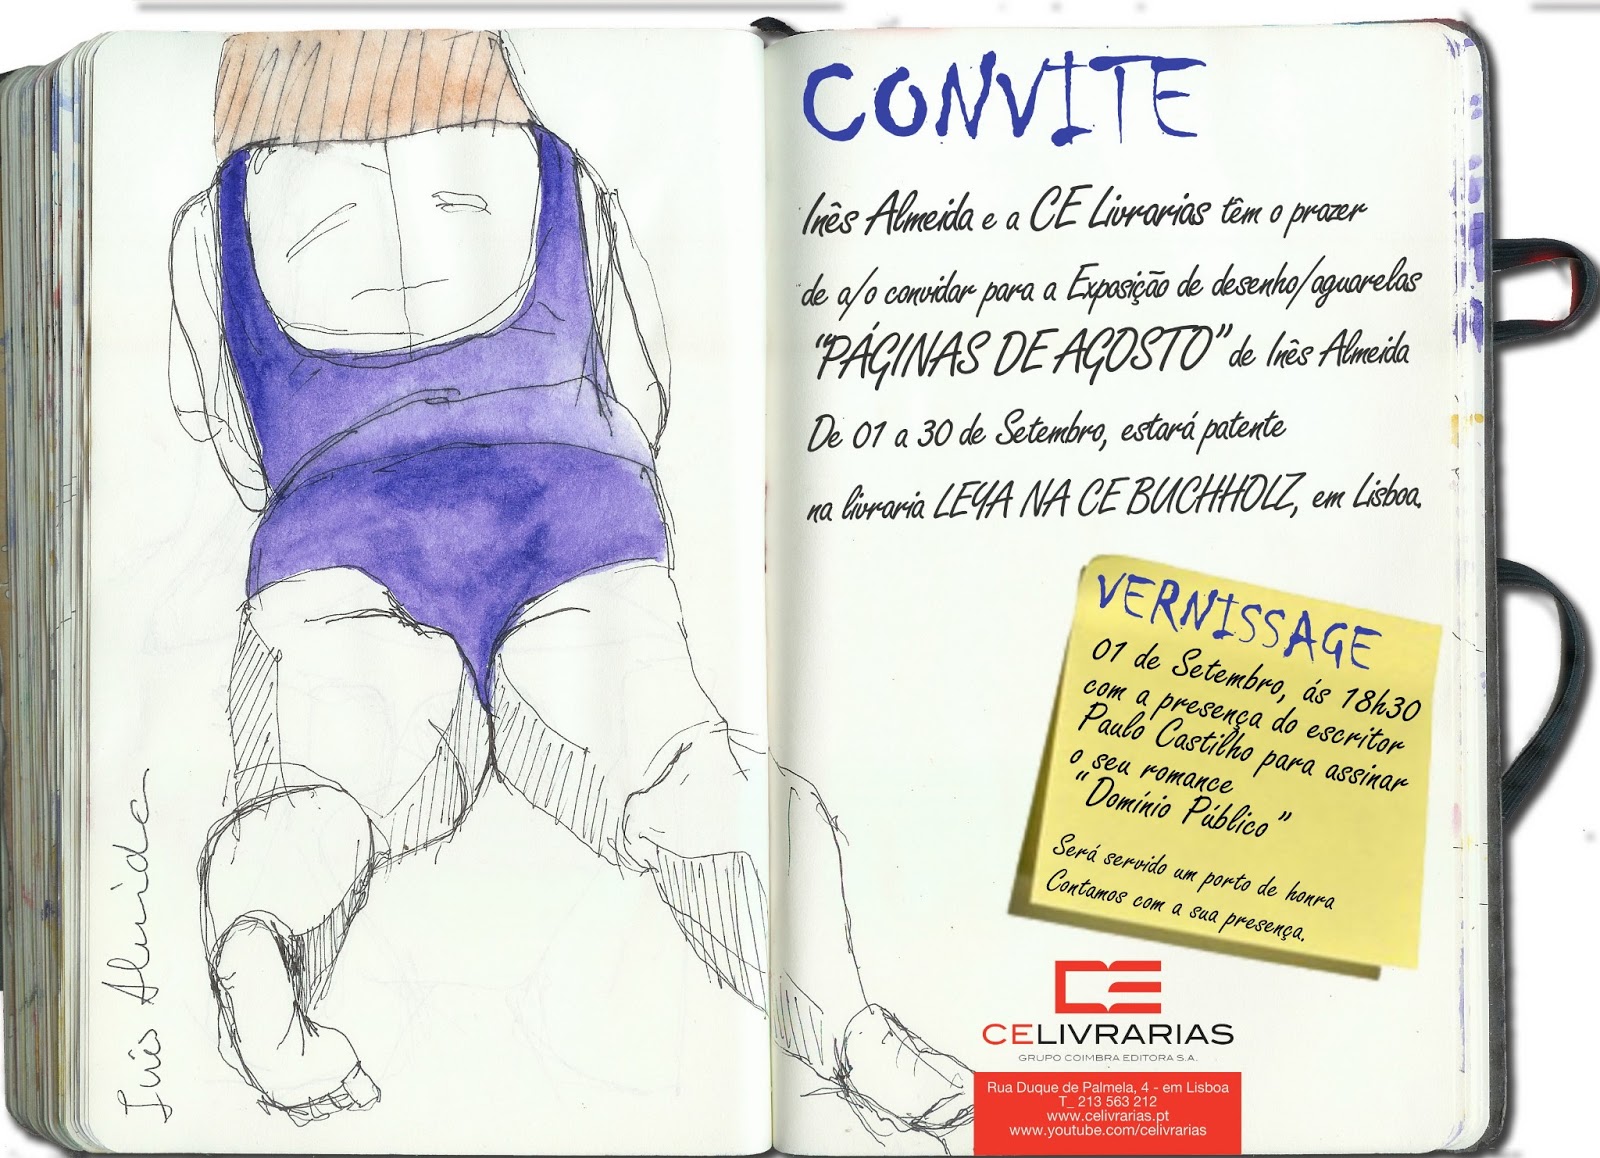 CONVITE
Inês Almeida e a CE Livrarias têm o prazer
de a/o convidar para a Exposição de desenho/aguarelas
“PÁGINAS DE AGOSTO” de Inês Almeida
De 01 a 30 de Setembro, estará patente
na livraria LEYA NA CE BUCHHOLZ, em Lisboa.
VERNISSAGE
01 de Setembro, ás 18h30
com a presença do escritor
Paulo Castilho para assinar
o seu romance
“Domínio Público”
Será servido um porto de honra
Contamos com a sua presença.
CELIVRARIAS
GRUPO COIMBRA EDITORA S.A.
Rua Duque de Palmela, 4 - em Lisboa
T_ 213 563 212
www.celivrarias.pt
www.youtube.com/celivrarias
Inês Almeida